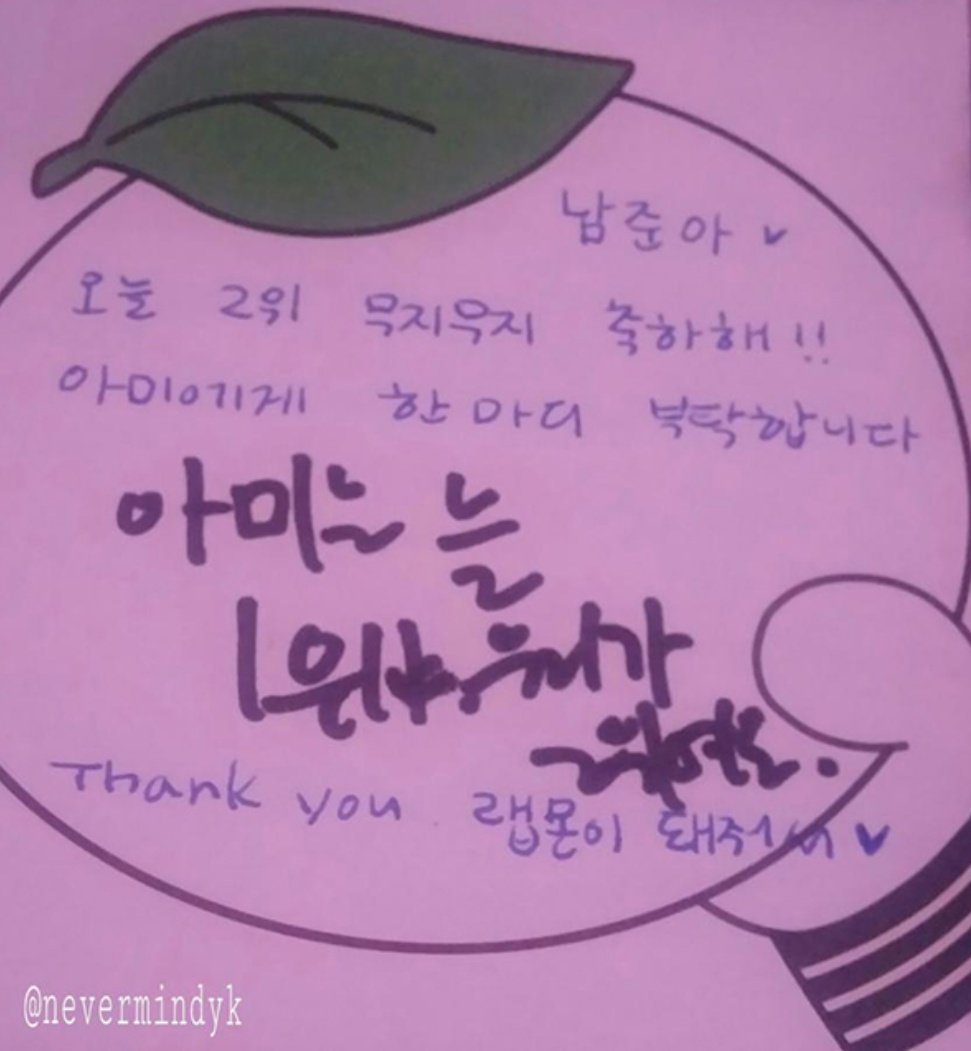 남준아 ♥
오늘 2위 무지무지 축하해!!
아미에게 한 마디 부탁합니다
아미는 늘
1위야, 우리가
2위여도.
Thank you 랩몬이 돼줘서 ♥
@nevermindyk